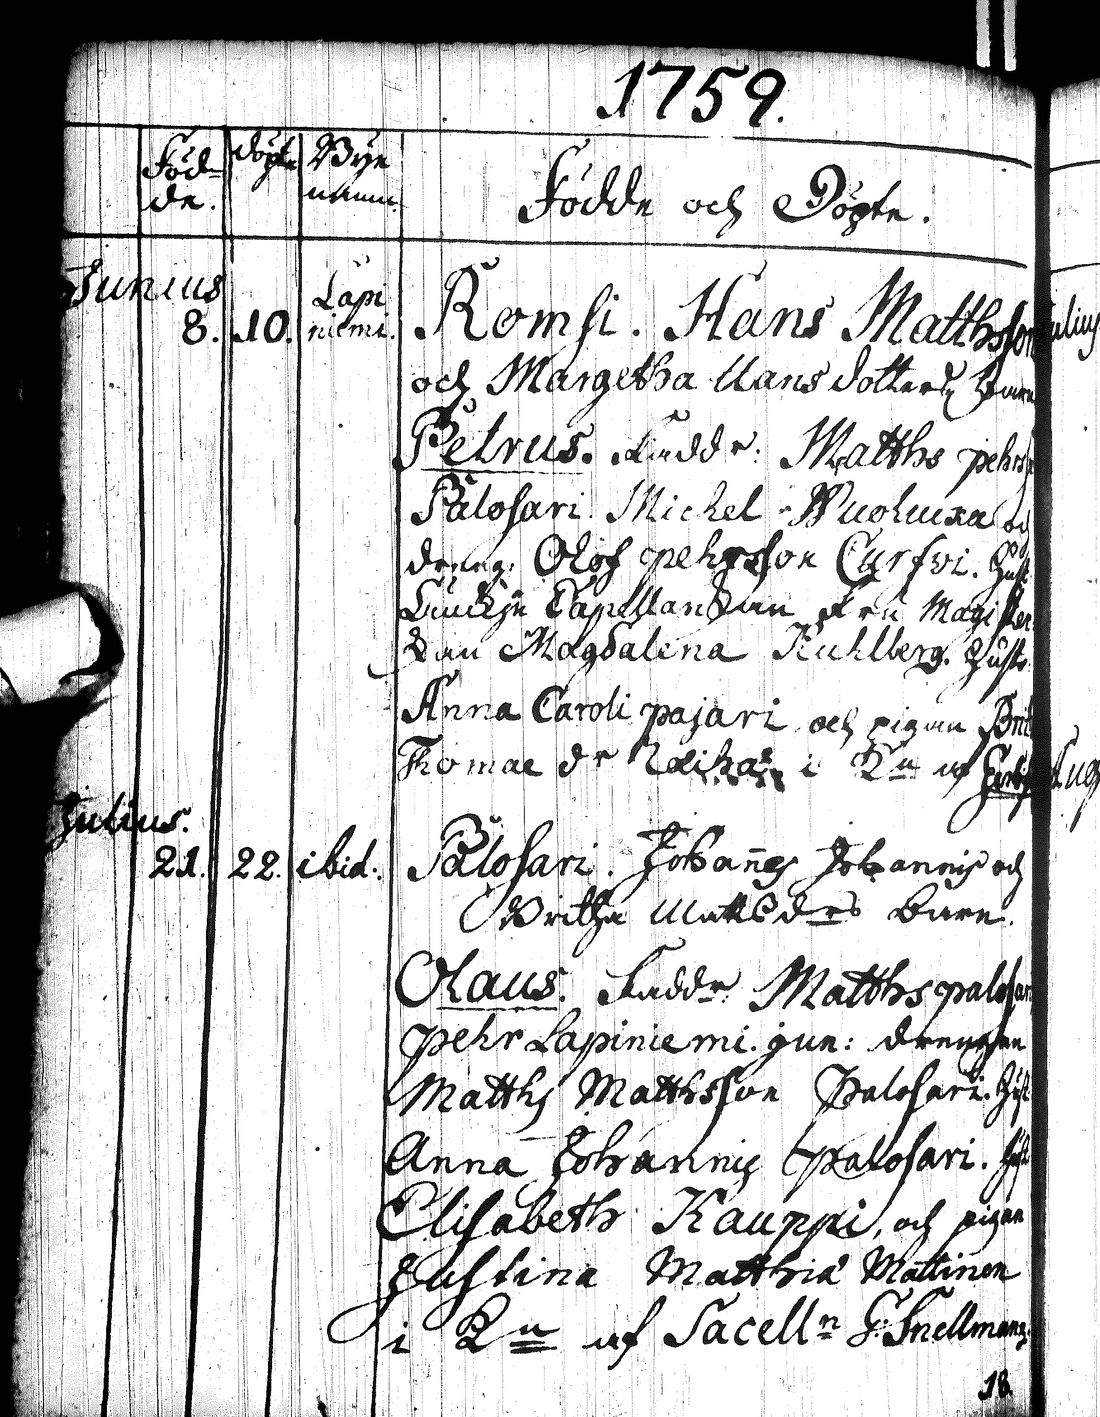 1759.
Föd=
de.
döpte
Bye
namn.
Födde och Döpte.
Junius
8. 10. Lapi
niemi.
Romsi. Hans Matthsson
och Margetha Hans dotters barn
Petrus. Faddr: Matths pehrs
Palosari. Michel och
dreng: Olof pehrsson Curfvi. Hust
Capellanskan Fru Magister
skan Magdalena Kuhlberg. Hustr
Anna Caroli pajari och pigan Brit
Thomae dr i Kn af
Julius.
21. 22. ibid:
Palosari. Johañes Johannis och
Britha Matts drs barn.
Olaus. Faddr. Matths palosari
pehr Lapiniemi. jun: drengen
Matths Matthsson Palosari. Hust
Anna Johannis palosari. Hust
Elisabeth Kauppi, och pigan
Justina Matthiæ Mattinen
i Kn af Sacelln G: Snellman
18.
Julius
Aug